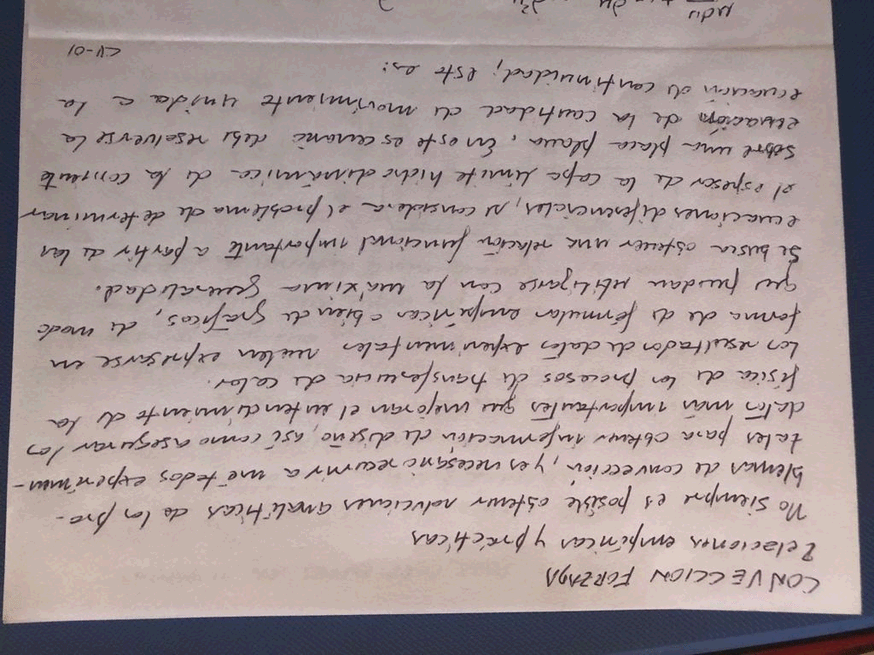 CONVECCION FORZADA
Relaciones empíricas y prácticas
No siempre es posible obtener soluciones analíticas de los pro-
blemas de convección, y es necesario recurrir a métodos experimen-
tales para obtener información de diseño, así como asegurar los
datos más importantes que mejoran el entendimiento de la
física de los procesos de transferencia de calor.
Los resultados de datos experimentales suelen expresarse en
forma de de fórmulas empíricas o bien de gráficos, de modo
que puedan utilizarse con la máxima generalidad.
Se busca obtener una relación funcional importante a partir de las
ecuaciones diferenciales, si considera el problema de determinar
el espesor de la capa límite hidrodinámica de la corriente
sobre una placa plana, En este escenario debe resolverse la
ecuación de la cantidad de movimiento unida a la
ecuación de continuidad; esto es:
CV-01